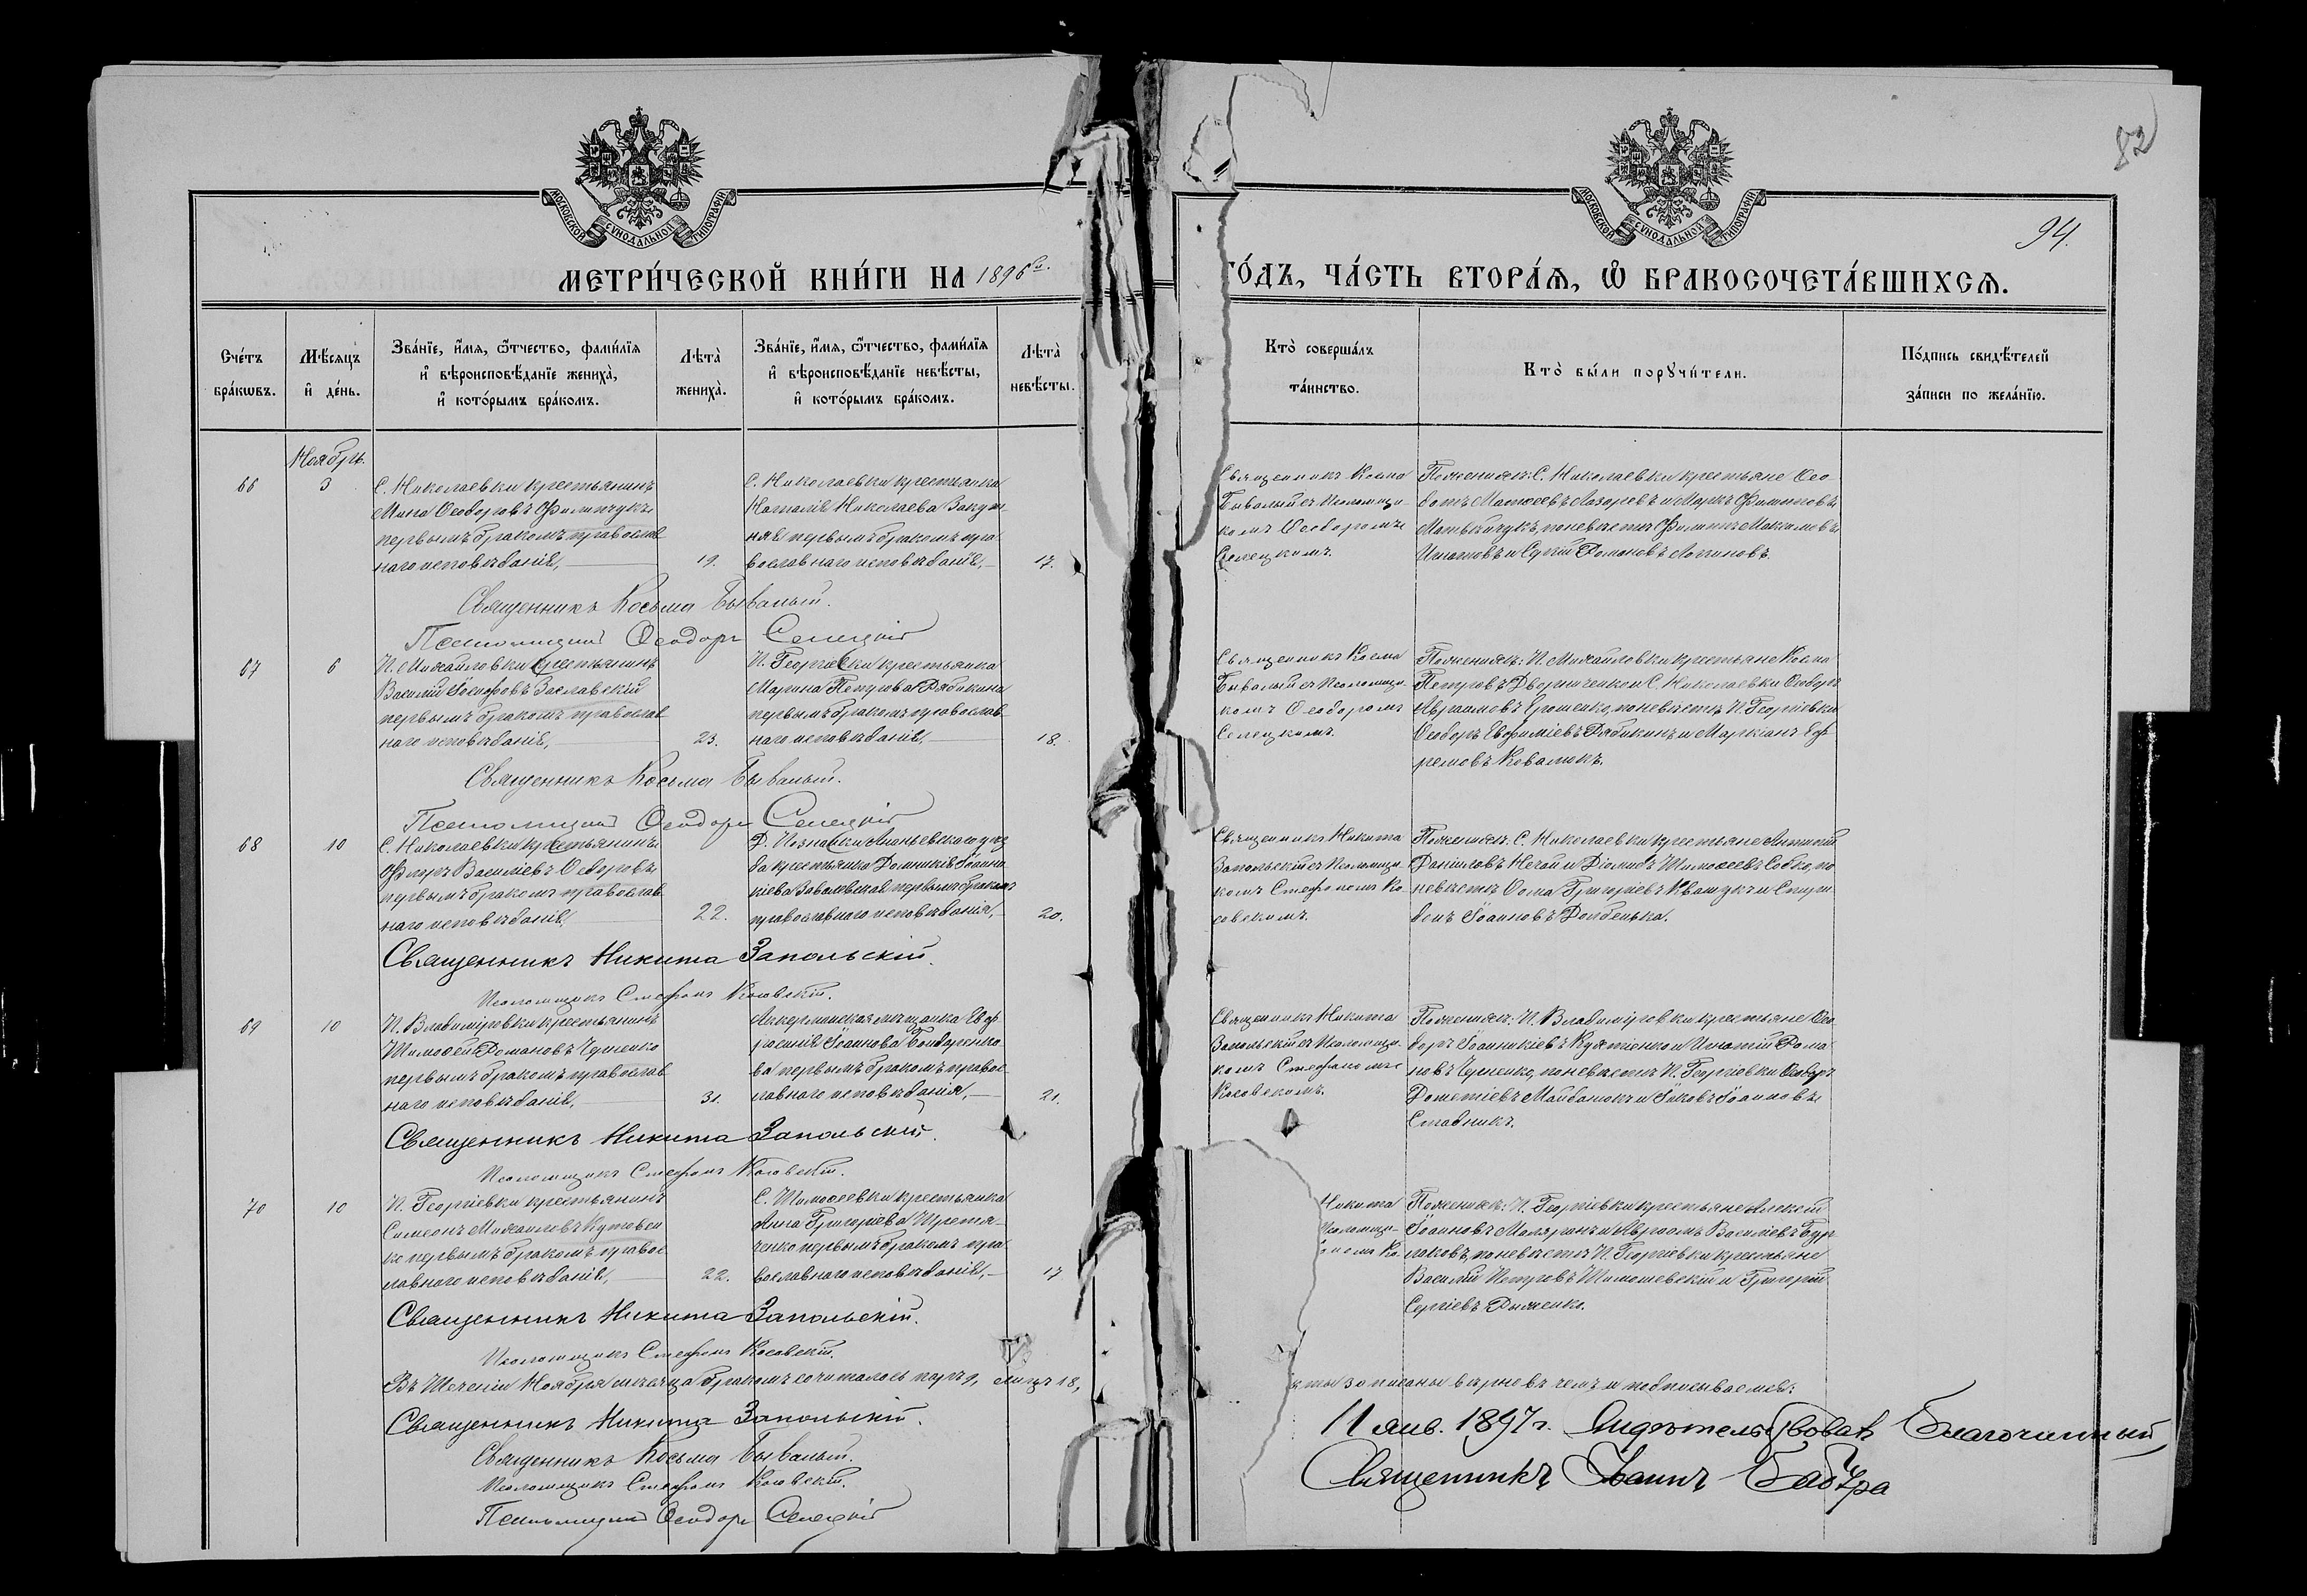 82
94.
МОСКОВСКОЙ СѴНОДАЛЬНОЙ ТИПОГРАФІИ
МОСКОВСКОЙ СѴНОДАЛЬНОЙ ТИПОГРАФІИ
МЕТРИ́ЧЕСКОЙ КНИ́ГИ НА 1896
ГО́ДЪ, ЧА́СТЬ ВТОРА́Ѧ, Ѽ БРАКОСОЧЕТА́ВШИХСѦ.
Сче́тъ бра́кѡвъ.
Мѣ́сѧцъ и҆ де́нь.
Зва́нїе, и҆́мѧ, ѻ҆́тчество, фами́лїѧ и҆ вѣроисповѣ́данїе жениха̀, и҆ кото́рымъ бра́комъ.
Лѣта̀ жениха̀.
Зва́нїе, и҆́мѧ, ѻ҆́тчество, фами́лїѧ и҆ вѣроисповѣ́данїе невѣ́сты, и҆ кото́рымъ бра́комъ.
Лѣта̀ невѣ́сты.
Кто̀ соверша́лъ та́инство.
Кто̀ бы́ли порꙋчи́тели.
По́дпись свидѣ́телей за́писи по жела́нїю.
Ноябрь.
66
3
С. Николаевки крестьянинъ
Мина Ѳеодоровъ Филипчукъ
первымъ бракомъ православ
наго исповѣданія,
19.
С. Николаевки крестьянка
Наталія Николаева
первымъ бракомъ пра
вославнаго исповѣданія,
17.
Священникъ Косма
Бывалый съ псаломщи
комъ Ѳеодоромъ
Селецкимъ.
По женихѣ: С. Николаевки крестьяне Ѳео
дотъ Матѳеевъ Лазаревъ и Маркъ Филипповъ
по невѣстѣ Филиппъ Максимовъ
Игнатовъ и Сергій Романовъ Логиновъ.
Священникъ Косьма Бывалый.
Псаломщикъ Ѳеодоръ Селецкій
67
6
П. Михайловки крестьянинъ
Василій Іосифовъ Заславскій
первымъ бракомъ православ
наго исповѣданія,
23.
П. Георгіевки крестьянка
Марина Петрова Рябикина
первымъ бракомъ православ
наго исповѣданія,
18.
Священникъ Косма
Бывалый съ псаломщи
комъ Ѳеодоромъ
Селецкимъ.
По женихѣ: П. Михайловки крестьяне Косма
Петровъ Дворниченко и С. Николаевки Ѳеодоръ
Авраамовъ Ярошенко, по невѣстѣ П. Георгіевки
Ѳеодоръ Евфиміевъ Рябикинъ и Маркіанъ Еф
ремовъ Ковалюкъ.
Священникъ Косьма Бывалый.
Псаломщикъ Ѳеодоръ Селецкій
68
10
С. Николаевки крестьянинъ
Василіевъ Ѳедоровъ
первымъ бракомъ православ
наго исповѣданія,
22.
Д. Познанки Ананьевскаго уѣз
да крестьянка Домникія Іоанни
кіева первымъ бракомъ
православнаго исповѣданія,
20.
Священникъ Никита
Запольскій съ псаломщи
комъ Стефаномъ Ко
совскимъ.
По женихѣ: С. Николаевки крестьяне
Даніиловъ Нечай и Діомидъ Тимоѳеевъ Собко, по
невѣстѣ Ѳома Григоріевъ Квашукъ и Спири
донъ Іоанновъ Долбенька.
Священникъ Никита Запольскій.
Псаломщикъ Стефанъ Косовскій.
69
10
П. Владиміровки крестьянинъ
Тимоѳей Романовъ Чуменко
первымъ бракомъ православ
наго исповѣданія,
31.
Аккерманская мѣщанка Евф
росинія Іоаннова Бондаренко
ва первымъ бракомъ правос
лавнаго исповѣданія,
21.
Священникъ Никита
Запольскій съ псаломщи
комъ Стефаномъ
Косовскимъ.
По женихѣ: П. Владиміровки крестьяне Ѳео
доръ Іоанникіевъ и Игнатій Рома
новъ Чуменко, по невѣстѣ П. Георгіевки Ѳеодоръ
Дометіевъ Майданюкъ и Іаковъ Іоанновъ
Ставникъ.
Священникъ Никита Запольскій.
Псаломщикъ Стефанъ Косовскій.
70
10
П. Георгіевки крестьянинъ
Симеонъ Михаиловъ
первымъ бракомъ правос
лавнаго исповѣданія,
22.
С. Тимоѳеевки крестьянка
Анна Григоріева
первымъ бракомъ пра
вославнаго исповѣданія,
17
Никита
псаломщи
Ко
По женихѣ: П. Георгіевки крестьяне Алексій
Іоанновъ Маляринъ и Авраамъ Василіевъ Бур
лаковъ, по невѣстѣ П. Георгіевки крестьяне
Василій Петровъ Тимошевскій и Григорій
Сергіевъ Рыженко.
Священникъ Никита Запольскій.
Псаломщикъ Стефанъ Косовскій.
Въ теченіи Ноября мѣсяца бракомъ сочиталось паръ 9, лицъ 18,
записаны вѣрно въ чемъ и подписываемся:
Священникъ Никита Запольскій.
Священникъ Косьма Бывалый.
Псаломщикъ Стефанъ Косовскій.
Псаломщикъ Ѳеодоръ Селецкій
11 янв. 1897 г. Свидѣтельствовалъ Благочинный
Священникъ Іоаннъ Бабура